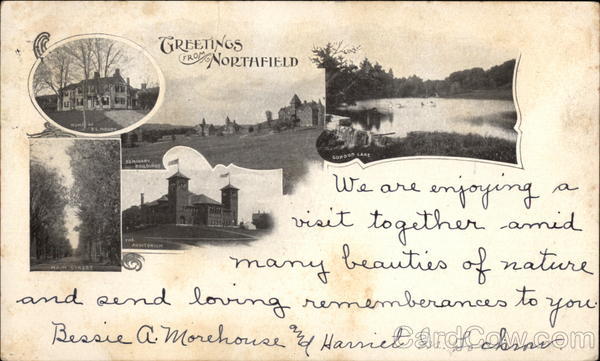 GREETINGS
FROM
NORTHFIELD
HOME OF
SEMINARY
BUILDINGS
GORDON LAKE
THE
AUDITORIUM
MAIN STREET
We are enjoying a
visit together amid
many beauties of nature
and send loving rememberances to you.
Bessie A Morehouse and Harriet
CardCow.com